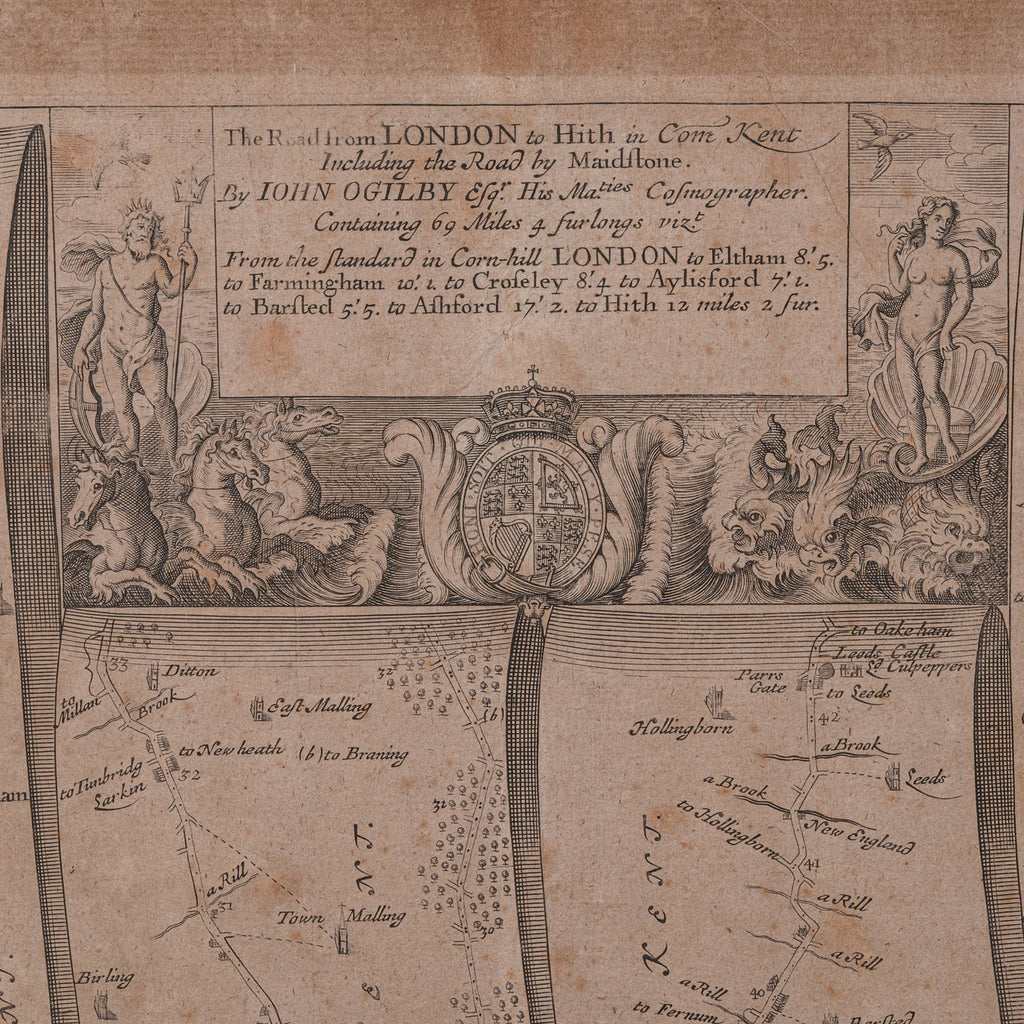 The Road from LONDON to Hith in Com̃ Kent
Including the Road by Maidſtone.
By IOHN OGILBY Eſqr. His Ma.ties Coſmographer.
Containing 69 Miles 4 furlongs vizt.
From the ſtandard in Corn-hill LONDON to Eltham 8'. 5.
to Farmingham 10'. 1. to Croſeley 8'. 4 to Aylisford 7'. 1.
to Barſted 5'. 5. to Aſhford 17'. 2. to Hith 12 miles 2 fur.
HONI·SOIT MAL Y PENSE
33
Ditton
to Millan
Brook
East Malling
to New heath
32
to Tunbridg
Larkin
a Rill
31
Town Malling
Birling
32
(b)
(b) to Braning
31
30
NT.
e
to Oakeham
Leeds Caſtle
Sr. Culpeppers
Parrs Gate
to Leeds
Hollingborn
42
a Brook
Leeds
a Brook
to Hollingborn
New England
41
a Rill
a Rill
KENT.
40
a Rill
to Fernum
Barſted
ham